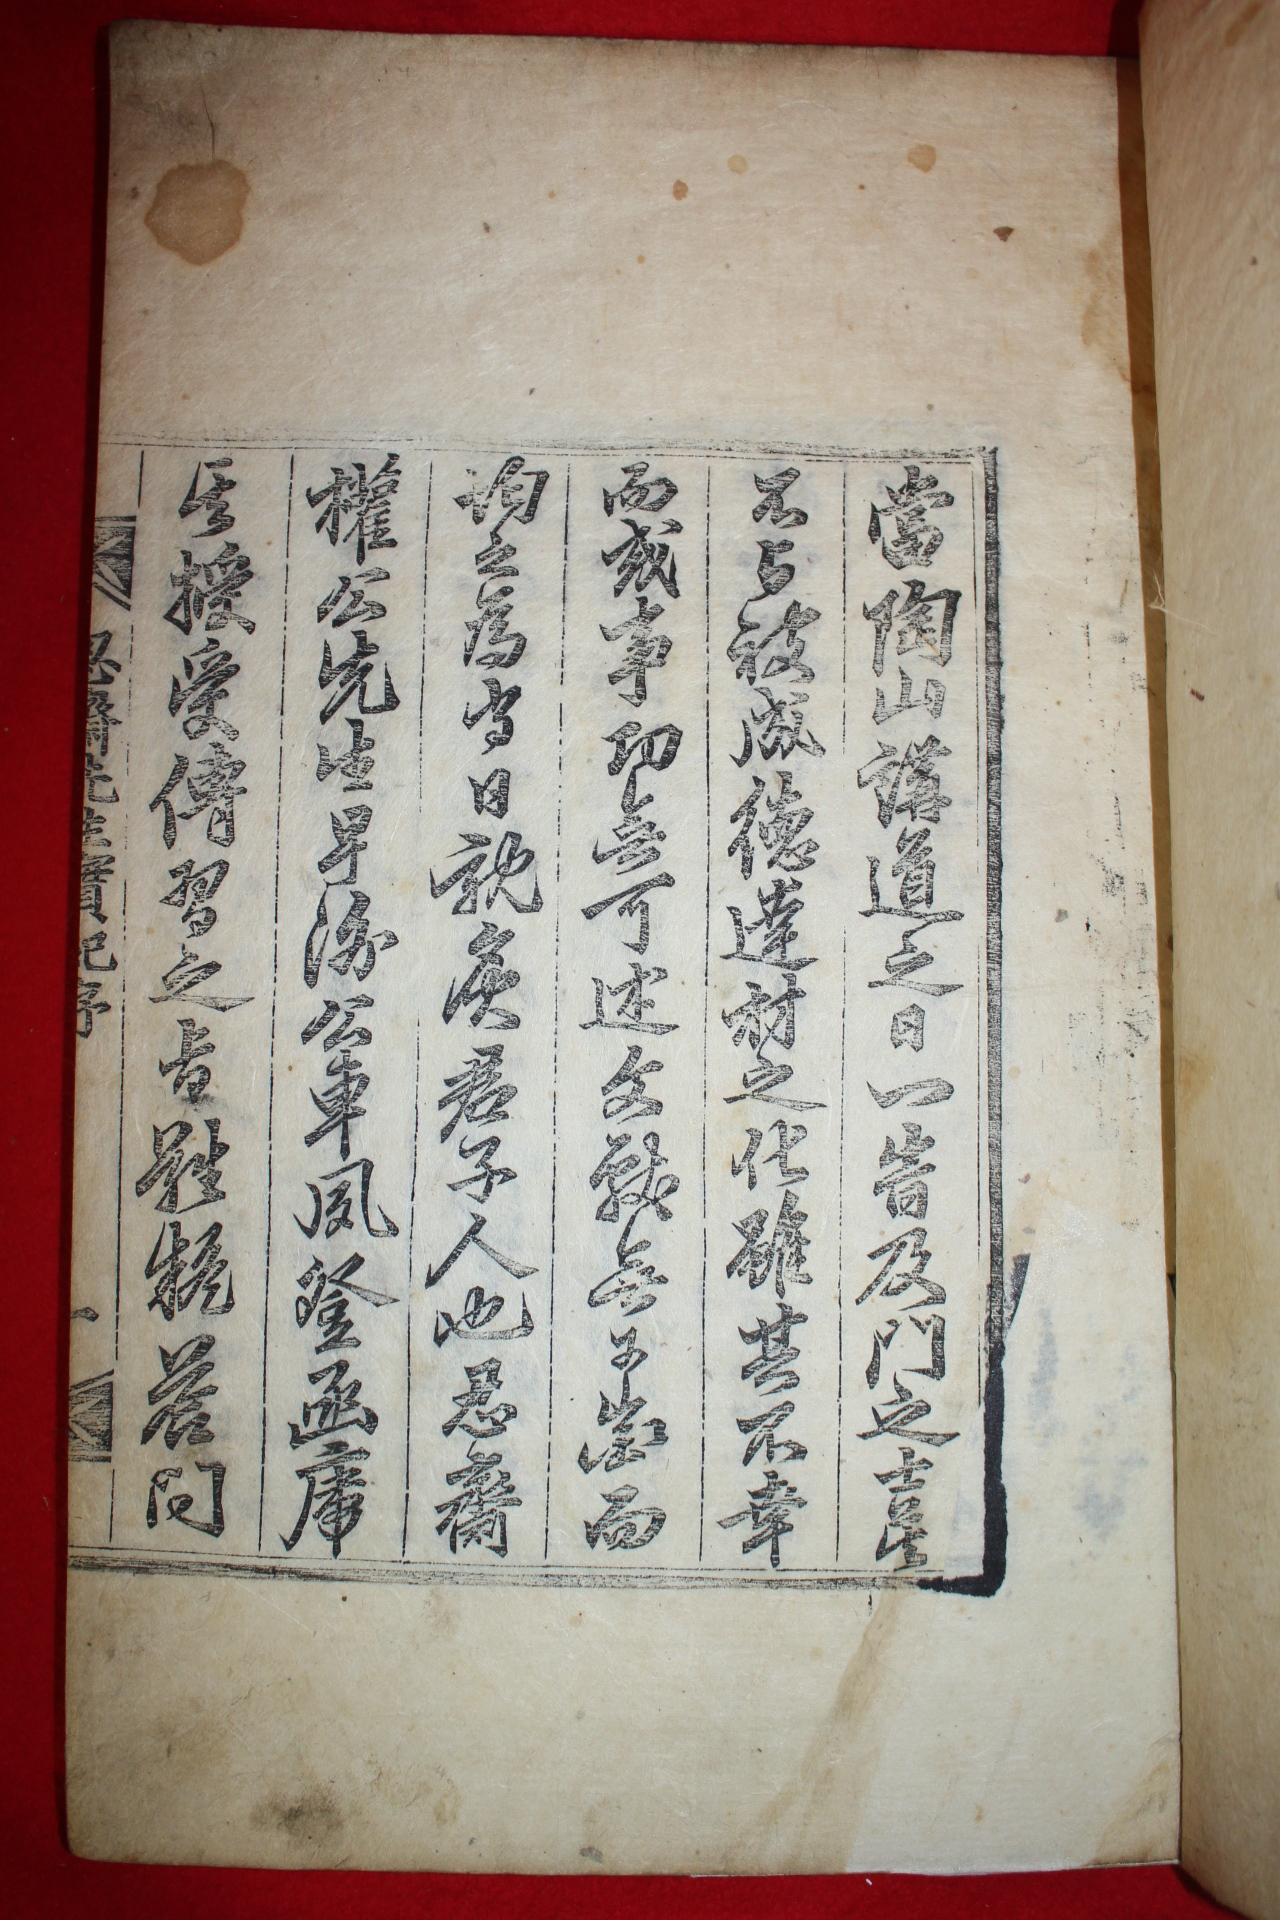 當陶山講道之日一時及門之士莫
不與被成德達材之化雖其不幸
而或事功無可述文獻無可徵而
均之爲當日親炙君子人也忍齋
權公先生早游公車夙登函席
其授受傳習之旨難疑答問
忍齋先生實記序
一